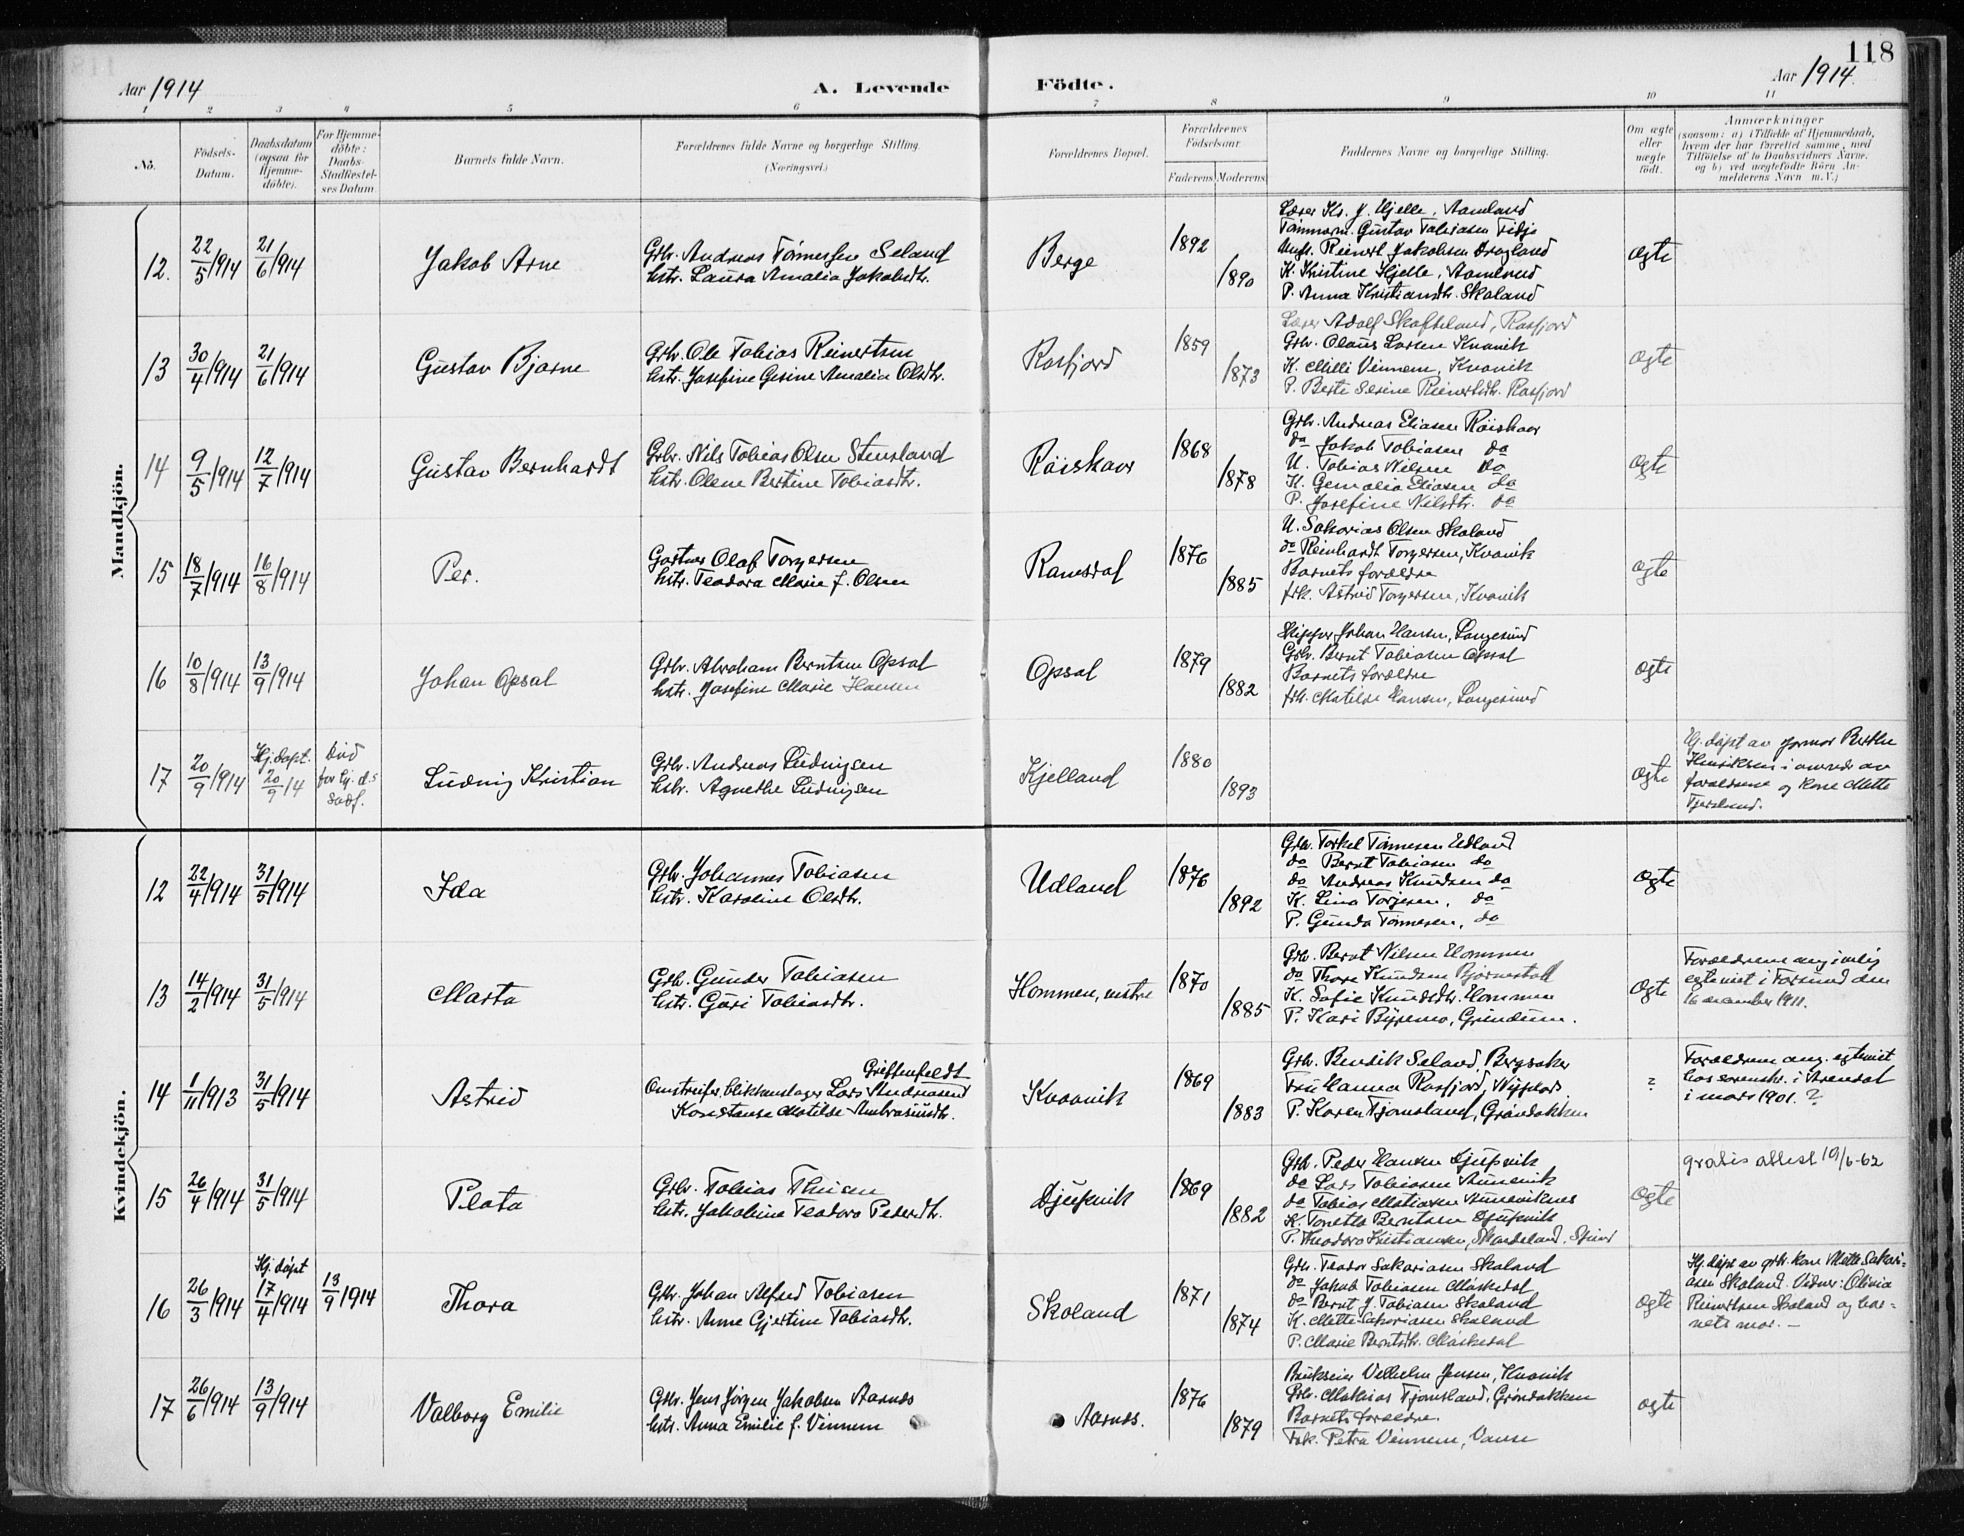 118
Aar 1914
A. Levende
Födte.
Aar 1914.
1 2 3 4 5 6 7 8 9 10 11
No.
Födsels-
Datum.
Daabsdatum
(ogsaa for
Hjemme-
döbte).
For Hjemme-
döbte:
Daabs-
Stadfæstel-
ses Datum
Barnets fulde Navn.
Forældrenes fulde Navne og borgerlige Stilling.
(Næringsvei.)
Forældrenes Bopæl.
Forældrenes
Fødselsaar.
Faderens. Moderens.
Faddernes Navne og borgerlige Stilling.
Om ægte
eller
uægte
födt.
Anmærkninger
(saasom: a) i Tilfælde af Hjemmedaab,
hvem der har forrettet samme, med
Tilføielse af to Daabsvidners Navne.
og b) ved uægtefødte Börn An-
melderens Navn m. V.)
Mandkjön.
12. 22/5 1914 21/6 1914
Jakob Arne
Grbr. Andreas Tönnessen Seland
hstr. Laura Amalia Jakobsdtr.
Berge
1892
1890
Lærer Kr. J. Hjelle, Aamland
Tönmerm. Gustav Tobiasen Fidje
Ungk. Reinert Jakobsen Dragland
K. Kristine Hjelle, Aamland
P. Anna Kristiansdtr. Skoland
ægte
13 30/4 1914 21/6 1914
Gustav Bjarne
Grbr. Ole Tobias Reinertsen
hstr. Josefine Gesine Amalia Olsdtr.
Rosfjord
1859
1873
Lærer Adolf Skofteland, Rosfjord
Grbr. Olaus Larsen Kvavik
K. Milli Vinnem, Kvavik
P. Berte Serine Reinertsdtr. Rosfjord
ægte
14 9/5 1914 12/7 1914
Gustav Bernhardt
Grbr. Nils Tobias Olsen Stensland
hstr. Olene Bertine Tobiasdtr.
Röiskaar
1868
1878
Grbr. Andreas Eliasen Röiskaar
do Jakob Tobiasen do
U. Tobias Nilsen do
K. Gemalia Eliasen do
P. Josefine Nilsdtr. do
ægte
15 18/7 1914 16/8 1914
Per.
Gartner Olaf Torgersen
hstr. Teodora Marie f. Olsen
Ramsdal
1876
1885
U. Sakarias Olsen Skoland
do Reinhardt Torgersen, Kvavik
Barnets forældre
frk. Astrid Torgersen, Kvavik
ægte
16 10/8 1914 13/9 1914
Johan Opsal
Grbr. Abraham Berntsen Opsal
hstr. Josefine Marie Hansen
Opsal
1879
1882
Skipper Johan Hansen, Langesund
Grbr. Bernt Tobiasen Opsal
Barnets forældre
frk. Matilde Hansen, Langesund
ægte
17 20/9 1914
Hj. döpt.
20/9 14
Död
for hj. ds
stadf.
Ludvig Kristian
Grbr. Andreas Ludvigsen
hstr. Agnethe Ludvigsen
Kjelland
1880
1893
ægte
Hj. döpt av jormor Berthe
Henriksen i anverelse av
forældrene og kone Mette
Fjersland.
Kvindekjön.
12 22/4 1914 31/5 1914
Ida
Grbr. Johannes Tobiasen
hstr. Karoline Olsdtr.
Udland
1876
1892
Grbr. Torkel Tönnesen Udland
do Bernt Tobiasen do
do Andreas Knudsen do
K. Lina Torjesen, do
P. Gunda Tönnesen, do
ægte
13 14/2 1914 31/5 1914
Marta
Grbr. Gunder Tobiasen
hstr. Guri Tobiasdtr.
Hommen, vestre
1870
1885
Grbr. Bernt Nilsen Hommen
do Thore Knudsen Bjørnestøl
K. Sofie Knudsdtr. Hommen
P. Kari Byremo, Grindum.
ægte
Forældrene ang. ivilig
egteviet i Farsund den
16 december 1911.
14 1/11 1913 31/5 1914
Astrid
Griffenfeldt
Omstreifer, blikkenslager Lars Andreasen
Konstanse Matilde Ambrosiusdtr.
Kvavik
1869
1883
Grbr. Bendik Seland, Bergsaker
Fru Hanna Rosfjord, Nypkar
P. Karen Tjomsland, Gröndokken
?
Forældrene ang. egteviet
hos sorenskr. i Arendal
i mars 1901. ?
15 26/4 1914 31/5 1914
Plata
Grbr. Tobias Thisen
hstr. Jakobine Teodora Pedersdtr.
Djupvik
1869
1882
Grbr. Peder Hansen Djupvik
do Lars Tobiassen Aunevik
do Tobias Matiasen Auneviknes
K. Tonette Berntsen Djupvik
P. Theodora Kristiansen, Skardeland, Spind
ægte
gratis attest 19/6-62
16 26/3 1914
Hj. döpt
17/4 1914
13/9 1914
Thora
Grbr. Johan Alfred Tobiasen
hstr. Anne Gjertine Tobiasdtr.
Skoland
1871
1874
Grbr. Teodor Sakariasen Skoland
do Jakob Tobiasen Måskedal
do Bernt J. Tobiasen Skoland
K. Mette Sakariasen Skoland
P. Marie Berntsdtr. Måskedal
ægte
Hj. døpt av grbr. kone Mette Sakari-
asen Skoland. Vidner: Olivia
Reinertsen Skoland og bar-
nets mor. —
17 26/6 1914 13/9 1914
Valborg Emilie
Grbr. Jens Jörgen Jakobsen Aarnes
hstr. Anna Emilie f. Vinnem
Aarnes.
1876
1879
Brukseier Vilhelm Jensen, Kvavik
Grbr. Mathias Tjomsland, Gröndokken
Barnets forældre.
Frk. Petra Vinnem, Vanse
ægte